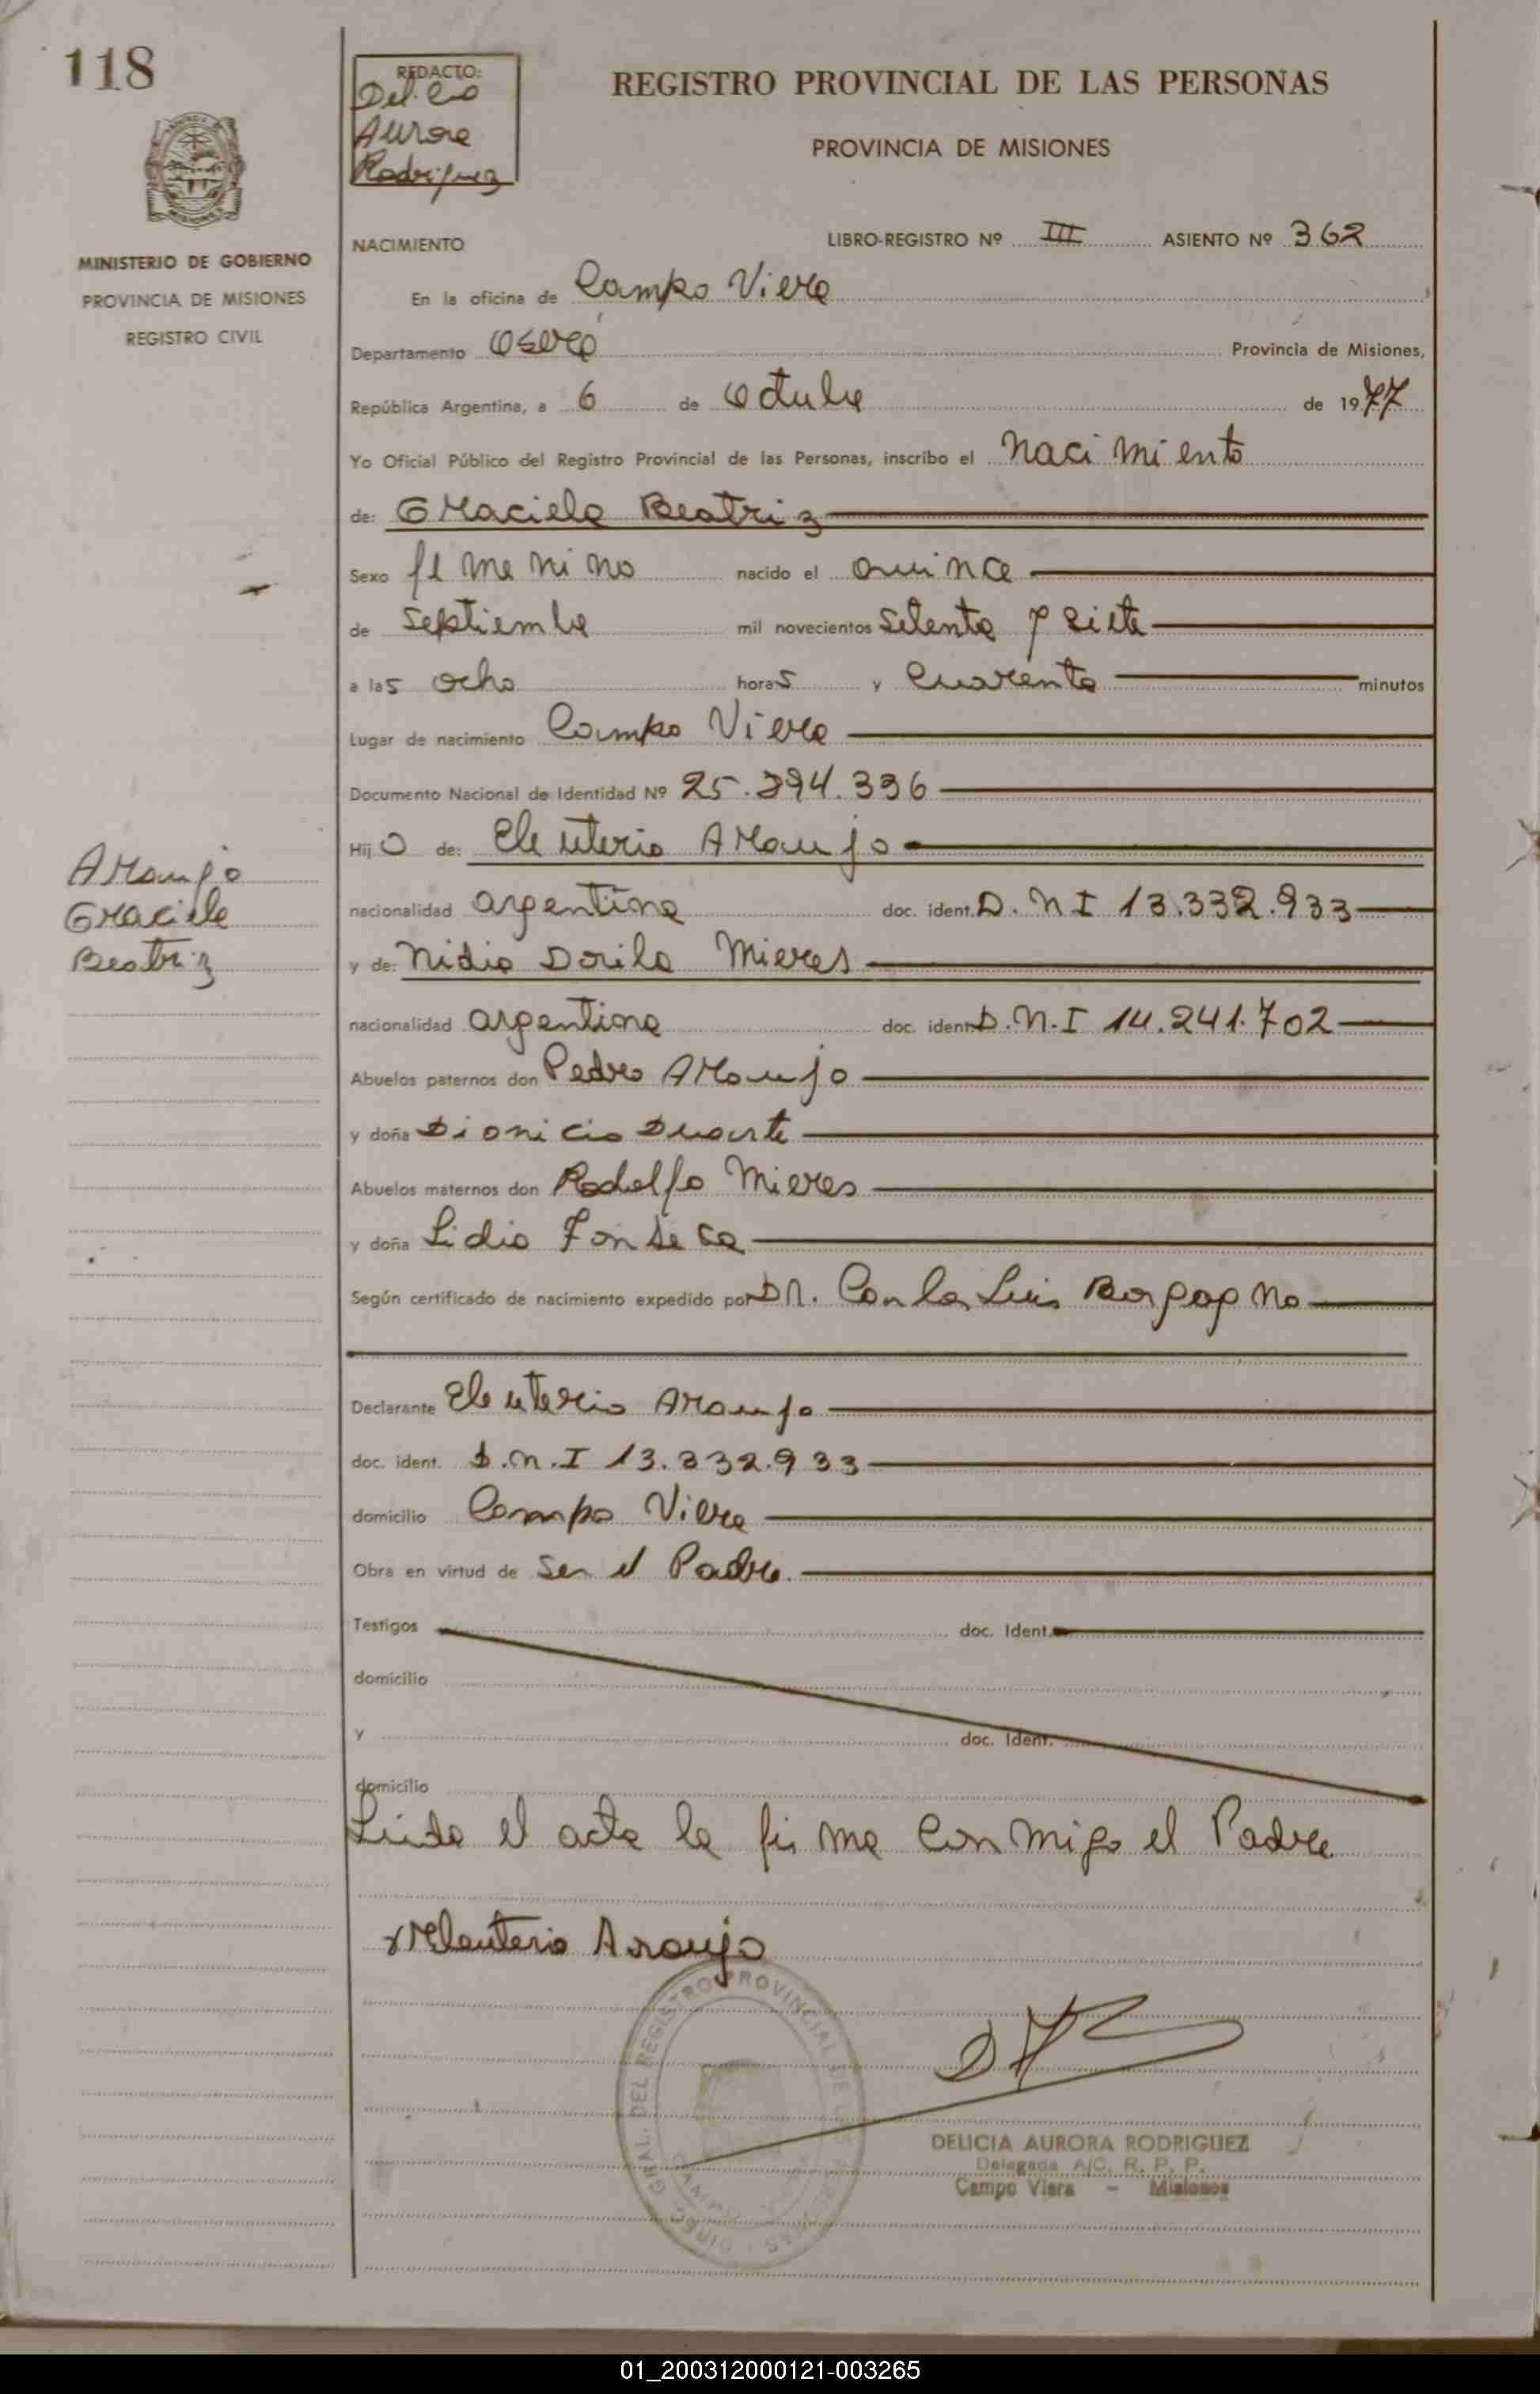 118
REDACTO:
Aurora
Rodriguez
REGISTRO PROVINCIAL DE LAS PERSONAS
PROVINCIA DE MISIONES
MINISTERIO DE GOBIERNO
PROVINCIA DE MISIONES
REGISTRO CIVIL
NACIMIENTO LIBRO-REGISTRO Nº III ASIENTO Nº 362
En la oficina de Campo Viera
Departamento Oberá Provincia de Misiones,
República Argentina, a 6 de Octubre de 1977
Yo Oficial Público del Registro Provincial de las Personas, inscribo el Nacimiento
de: Graciela Beatriz
Sexo femenino nacido el quince
de Septiembre mil novecientos Setenta y siete
a las ocho horas y Cuarenta minutos
Lugar de nacimiento Campo Viera
Documento Nacional de Identidad Nº 25.894.396
Hijo de: Eleuterio Araujo
Araujo
Graciela
Beatriz
nacionalidad argentina doc. ident. D.N I 13.332.933
y de: Nidia Dorila Mieres
nacionalidad argentina doc. ident. D.N.I 14.241.702
Abuelos paternos don Pedro Araujo
y doña Dionicia Duarte
Abuelos maternos don Rodolfo Mieres
y doña Lidia Fonseca
Según certificado de nacimiento expedido por DR. Luis
Declarante Eleuterio Araujo
doc. ident. D.N.I 13.332.933
domicilio Campo Viera
Obra en virtud de Ser el Padre.
Testigos doc. Ident.
domicilio
y doc. Ident.
domicilio
Leida el acta la firma Conmigo el Padre
Eleuterio Araujo
DIREC. GRAL. DEL REGISTRO PROVINCIAL DE LAS PERSONAS
CAMPO
DELICIA AURORA RODRIGUEZ
Delegada A/C. R. P. P.
Campo Viera - Misiones
01_200312000121-003265